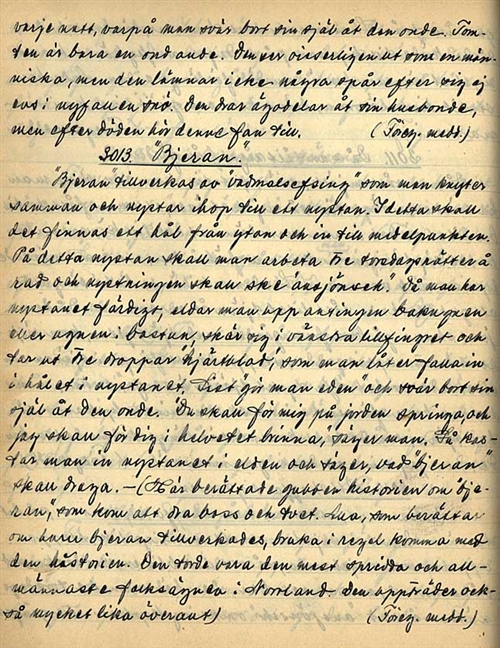 varje natt, varpå man svär bort sin själ åt den onde. Tom-
ten är bara en ond ande. Den ser visserligen ut som en män-
niska, men den lämnar icke några spår efter sig ej
ens i nyfallen snö. Den drar ägodelar åt sin husbonde,
men efter döden hör denne fan till. (Föreg. medd.)
3013. "Bjeran".
"Bjeran" tillverkas av "vadmalsefsing" som man knyter
samman och nystar ihop till ett nystan. I detta skall
det finnas ett hål från ytan och in till medelpunkten.
På detta nystan skall man arbeta tre torsdagsnätter å
rad och nystningen skall ske "ansjönsch". Då man har
nystanet färdigt, eldar man upp antingen bakugnen
eller ugnen i bastun, skär sig i vänstra lillfingret och
tar ut tre droppar hjärtblod, som man låter falla in
i hålet i nystanet. Sist gör man eden och svär bort sin
själ åt den onde. "Du skall för mig på jorden springa, och
jag skall för dig i helvetet brinna," säger man. Så kas-
tar man in nystanet i elden och säger, vad "bjeran"
skall draga. — (Här berättade gubben historien om "bje-
ran", som kom att dra boss och tvet. Alla, som berättar
om huru bjeran tillverkades, bruka i regel komma med
den historien. Den torde vara den mest spridda och all-
männaste folksägnen i Norrland. Den uppträder ock-
så mycket lika överallt) (Föreg. medd.)